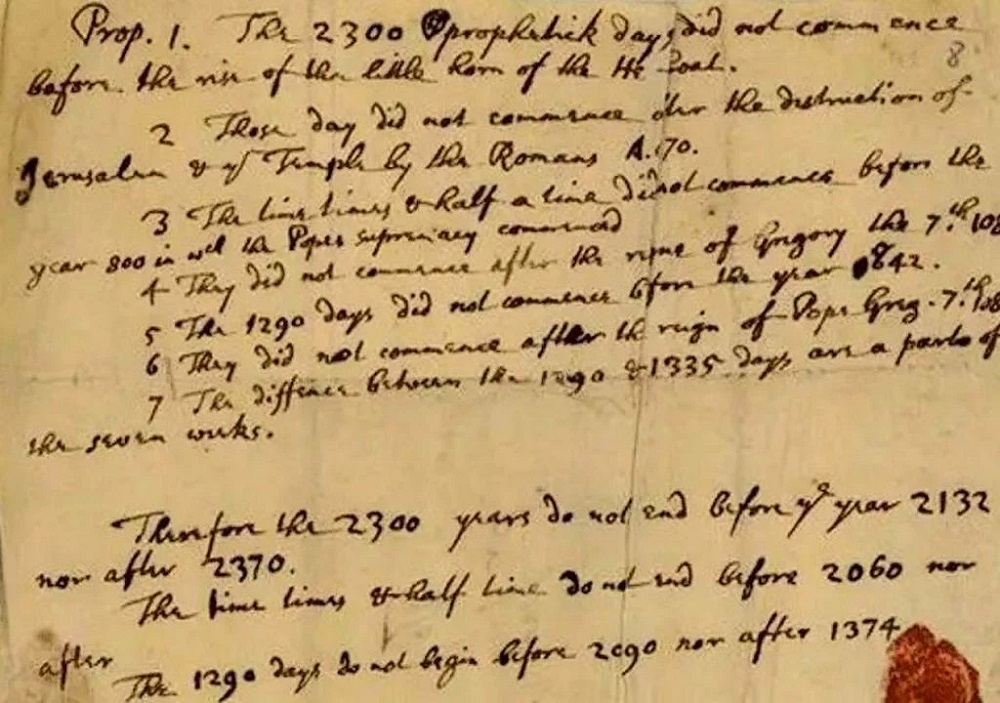 Prop. 1. The 2300 prophetick days did not commence
before the rise of the little horn of the He Goat.
8
2 Those day did not commence after the destruction of
Jerusalem & ye Temple by the Romans A. 70.
3 The time times & half a time did not commence before the
year 800 in wch the Popes supremacy commenced
4 They did not commence after the reigne of Gregory the 7.th
5 The 1290 days did not commence before the year 842.
6 They did not commence after the reign of Pope Greg. 7.th
7 The diffence between the 1290 & 1335 days are a parts of
the seven weeks.
Therefore the 2300 years do not end before ye year 2132
nor after 2370.
The time times & half time do not end before 2060 nor
after
The 1290 days do not begin before 2090 nor after 1374